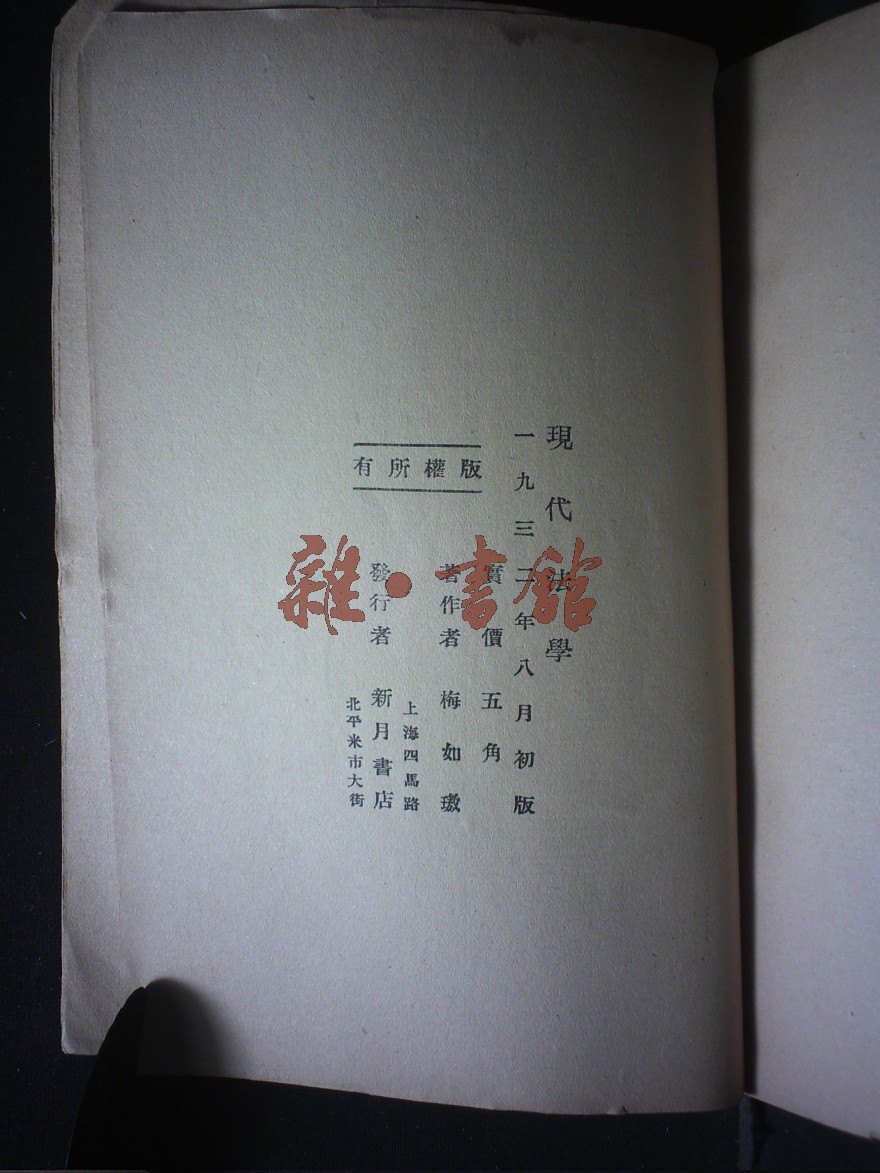 現代法學
一九三二年八月初版
實價五角
版權所有
著作者 梅如璈
上海四馬路
發行者 新月書店
北平米市大街
雜·書館